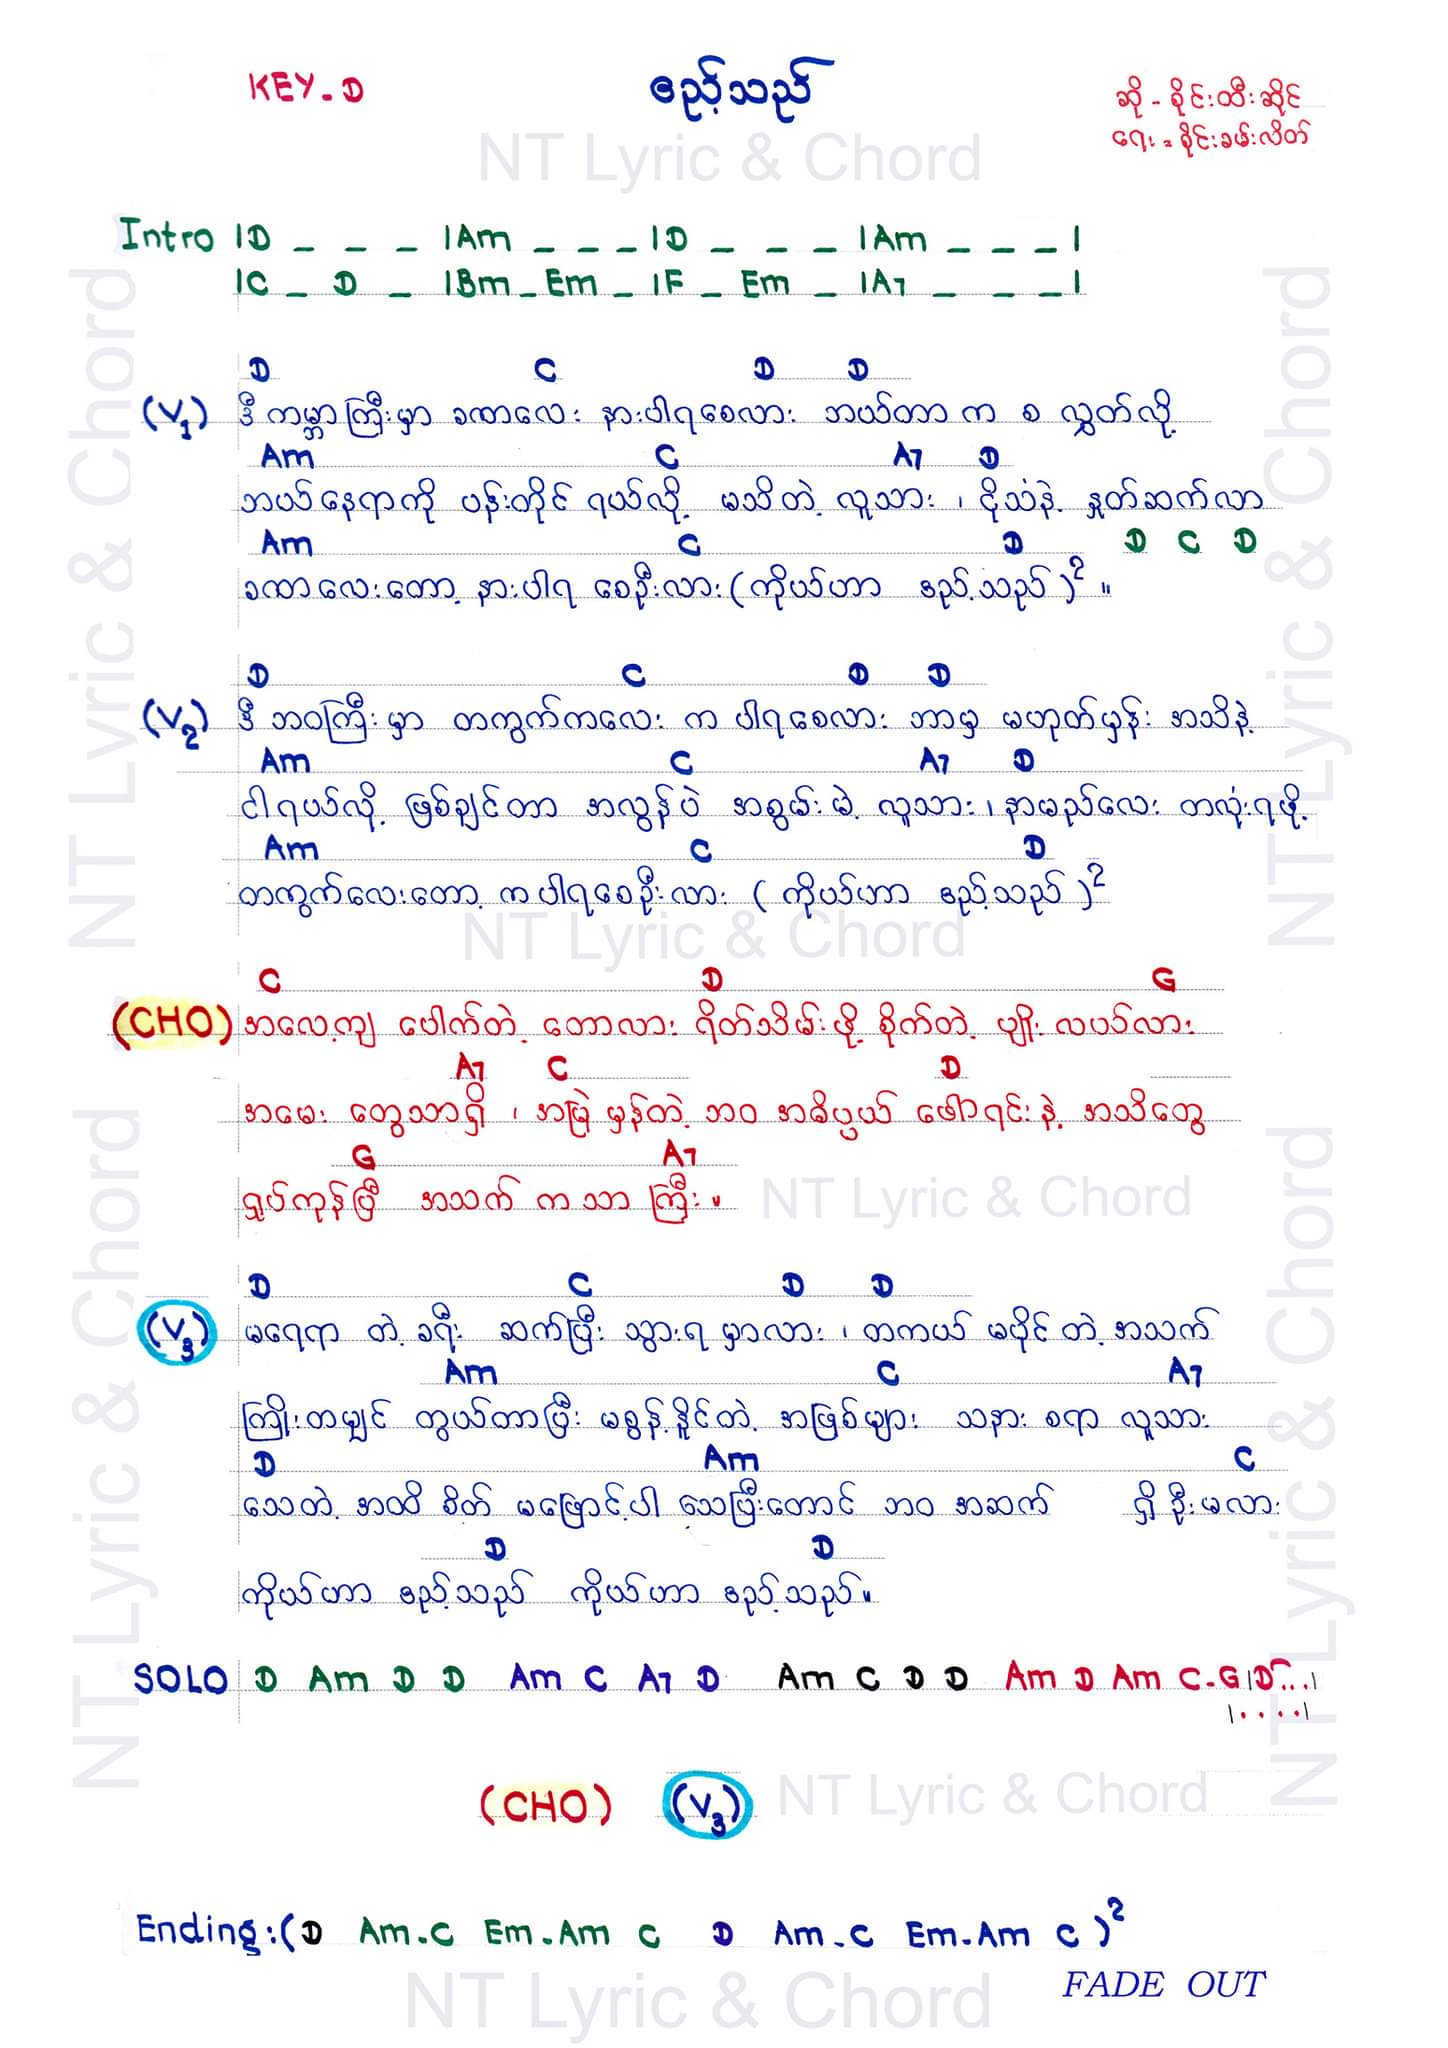 KEY - D
ဧည့်သည်
ဆို - စိုင်းထီးဆိုင်
ရေး = စိုင်းခမ်းလိတ်
NT Lyric & Chord
Intro |D _ _ _ |Am _ _ _ |D _ _ _ |Am _ _ _ |
|C _ D _ |Bm _ Em _ |F _ Em _ |A7 _ _ _ |
D C D D
(V1) ဒီ ကမ္ဘာကြီးမှာ ခဏလေး နားပါရစေလား ဘယ်တာ က စ လွှတ်လို့
Am C A7 D
ဘယ်နေရာကို ပန်းတိုင် ရယ်လို့ မသိတဲ့ လူသား ၊ ငိုသံနဲ့ နှုတ်ဆက်လာ
Am C D D C D
ခဏလေးတော့ နားပါရ စေဦးလား (ကိုယ်ဟာ ဧည့်သည်)2 ။
D C D D
(V2) ဒီ ဘဝကြီးမှာ တကွက်ကလေး က ပါရစေလား ဘာမှ မဟုတ်မှန်း အသိနဲ့
Am C A7 D
ငါရယ်လို့ ဖြစ်ချင်တာ အလွန်ပဲ အစွမ်းမဲ့ လူသား ၊ နာမည်လေး တလုံးရဖို့
Am C D
တကွက်လေးတော့ ကပါရစေဦးလား (ကိုယ်ဟာ ဧည့်သည်)2
NT Lyric & Chord
C D G
(CHO) အလေ့ကျ ပေါက်တဲ့ တောလား ရိတ်သိမ်းဖို့ စိုက်တဲ့ ပျိုး လယ်လား
A7 C D
အမေး တွေသာရှိ ၊ အမြဲ မှန်တဲ့ ဘဝ အဓိပ္ပယ် ဖေါ်ရင်းနဲ့ အသိတွေ
G A7
ရှုပ်ကုန်ပြီ အသက် က သာ ကြီး ။
NT Lyric & Chord
D C D D
(V3) မရေရာ တဲ့ ခရီး ဆက်ပြီး သွားရ မှာလား ၊ တကယ် မပိုင်တဲ့ အသက်
Am C A7
ကြိုးတမျှင် တွယ်တာပြီး မစွန့်နိူင်တဲ့ အဖြစ်များ သနား စရာ လူသား
D Am C
သေတဲ့ အထိ စိတ် မဖြောင့်ပါ သေပြီးတောင် ဘဝ အဆက် ရှိဦးမလား
D D
ကိုယ်ဟာ ဧည့်သည် ကိုယ်ဟာ ဧည့်သည် ။
SOLO D Am D D Am C A7 D Am C D D Am D Am C - G |D...|
|....|
(CHO) (V3)
NT Lyric & Chord
Ending : (D Am - C Em - Am C D Am - C Em - Am C)2
FADE OUT
NT Lyric & Chord
NT Lyric & Chord
NT Lyric & Chord
NT Lyric & Chord
NT Lyric & Chord